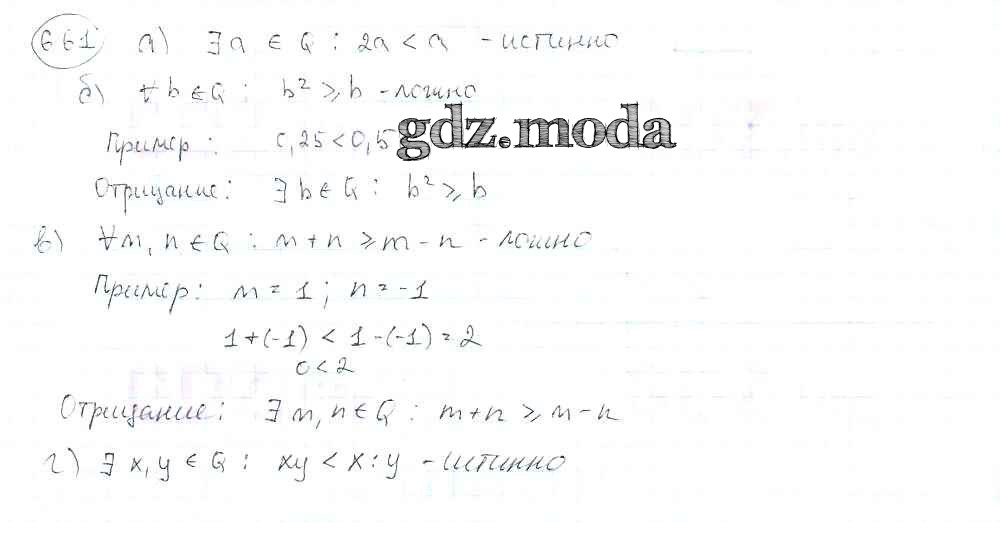 661 а) ∃ a ∈ Q : 2a < a - истинно
б) ∀ b ∈ Q : b² ⩾ b - ложно
gdz.moda
Пример : 0,25 < 0,5
Отрицание : ∃ b ∈ Q : b² ⩾ b
в) ∀ m, n ∈ Q : m + n ⩾ m - n - ложно
Пример : m = 1 ; n = -1
1 + (-1) < 1 - (-1) = 2
0 < 2
Отрицание : ∃ m, n ∈ Q : m + n ⩾ m - n
г) ∃ x, y ∈ Q : xy < x : y - истинно